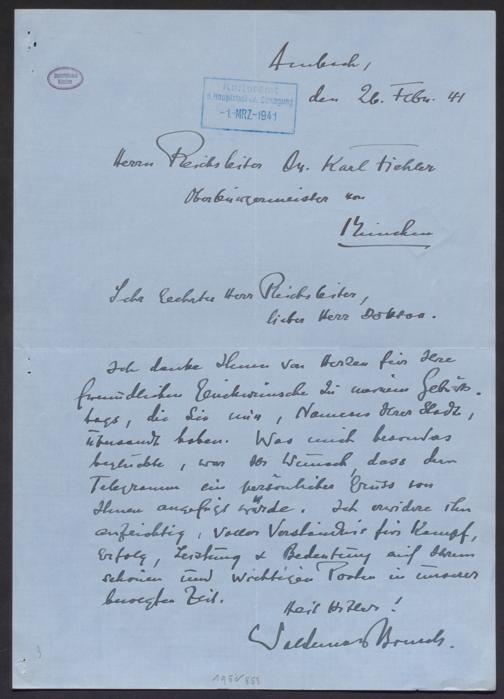 Ambach,
den 26. Febr. 41
Kulturamt
d. Hauptstadt d. Bewegung
-1. MRZ. 1941
Herrn Reichsleiter Dr. Karl Fiehler
Oberbürgermeister von
München
Sehr geehrter Herr Reichsleiter,
lieber Herr Doktor.
Ich danke Ihnen von Herzen für Ihre
freundlichen Glückwünsche zu meinem Geburts-
tage, die Sie mir, Namens Ihrer Stadt,
übersandt haben. Was mich besonders
beglückte, war der Wunsch, dass dem
Telegramm ein persönlicher Gruss von
Ihnen angefügt würde. Ich erwidere ihn
aufrichtig, voller Verständnis für Kampf,
Erfolg, Leistung & Bedeutung auf Ihrem
schönen und wichtigen Posten in unserer
bewegten Zeit.
Heil Hitler!
Waldemar Bonsels.